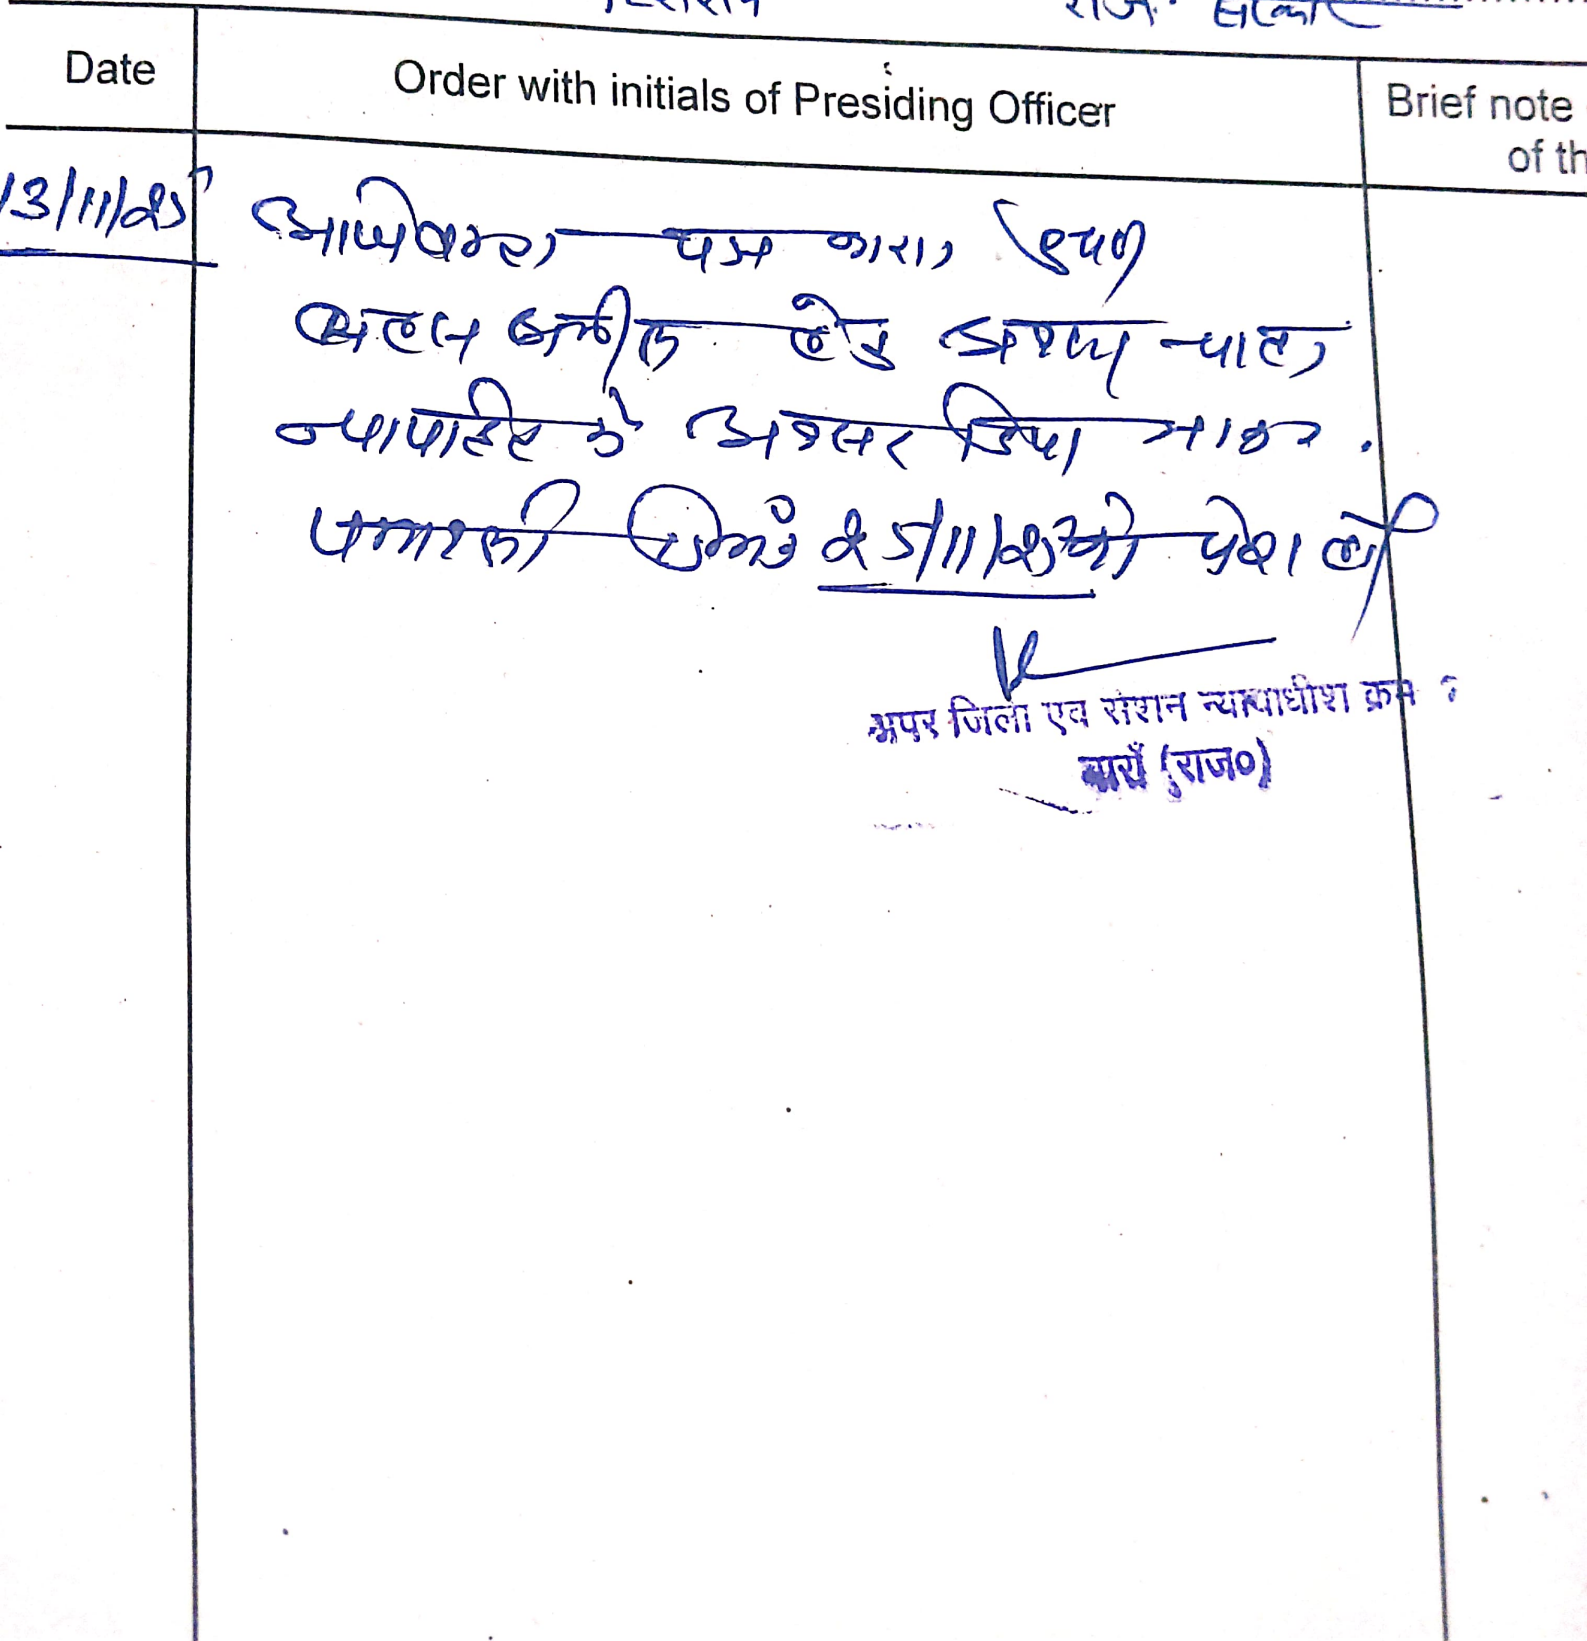 राज. सरकार
Date
Order with initials of Presiding Officer
Brief note
of th
13/11/25
पत्र
बहस अपील हेतु अवसर चाहा
न्यायहित में अवसर दिया जाकर
पत्रावली दिनांक 25/11/25 को पेश हो
अपर जिला एव सेशन न्यायाधीश क्रम
बाराँ (राज०)